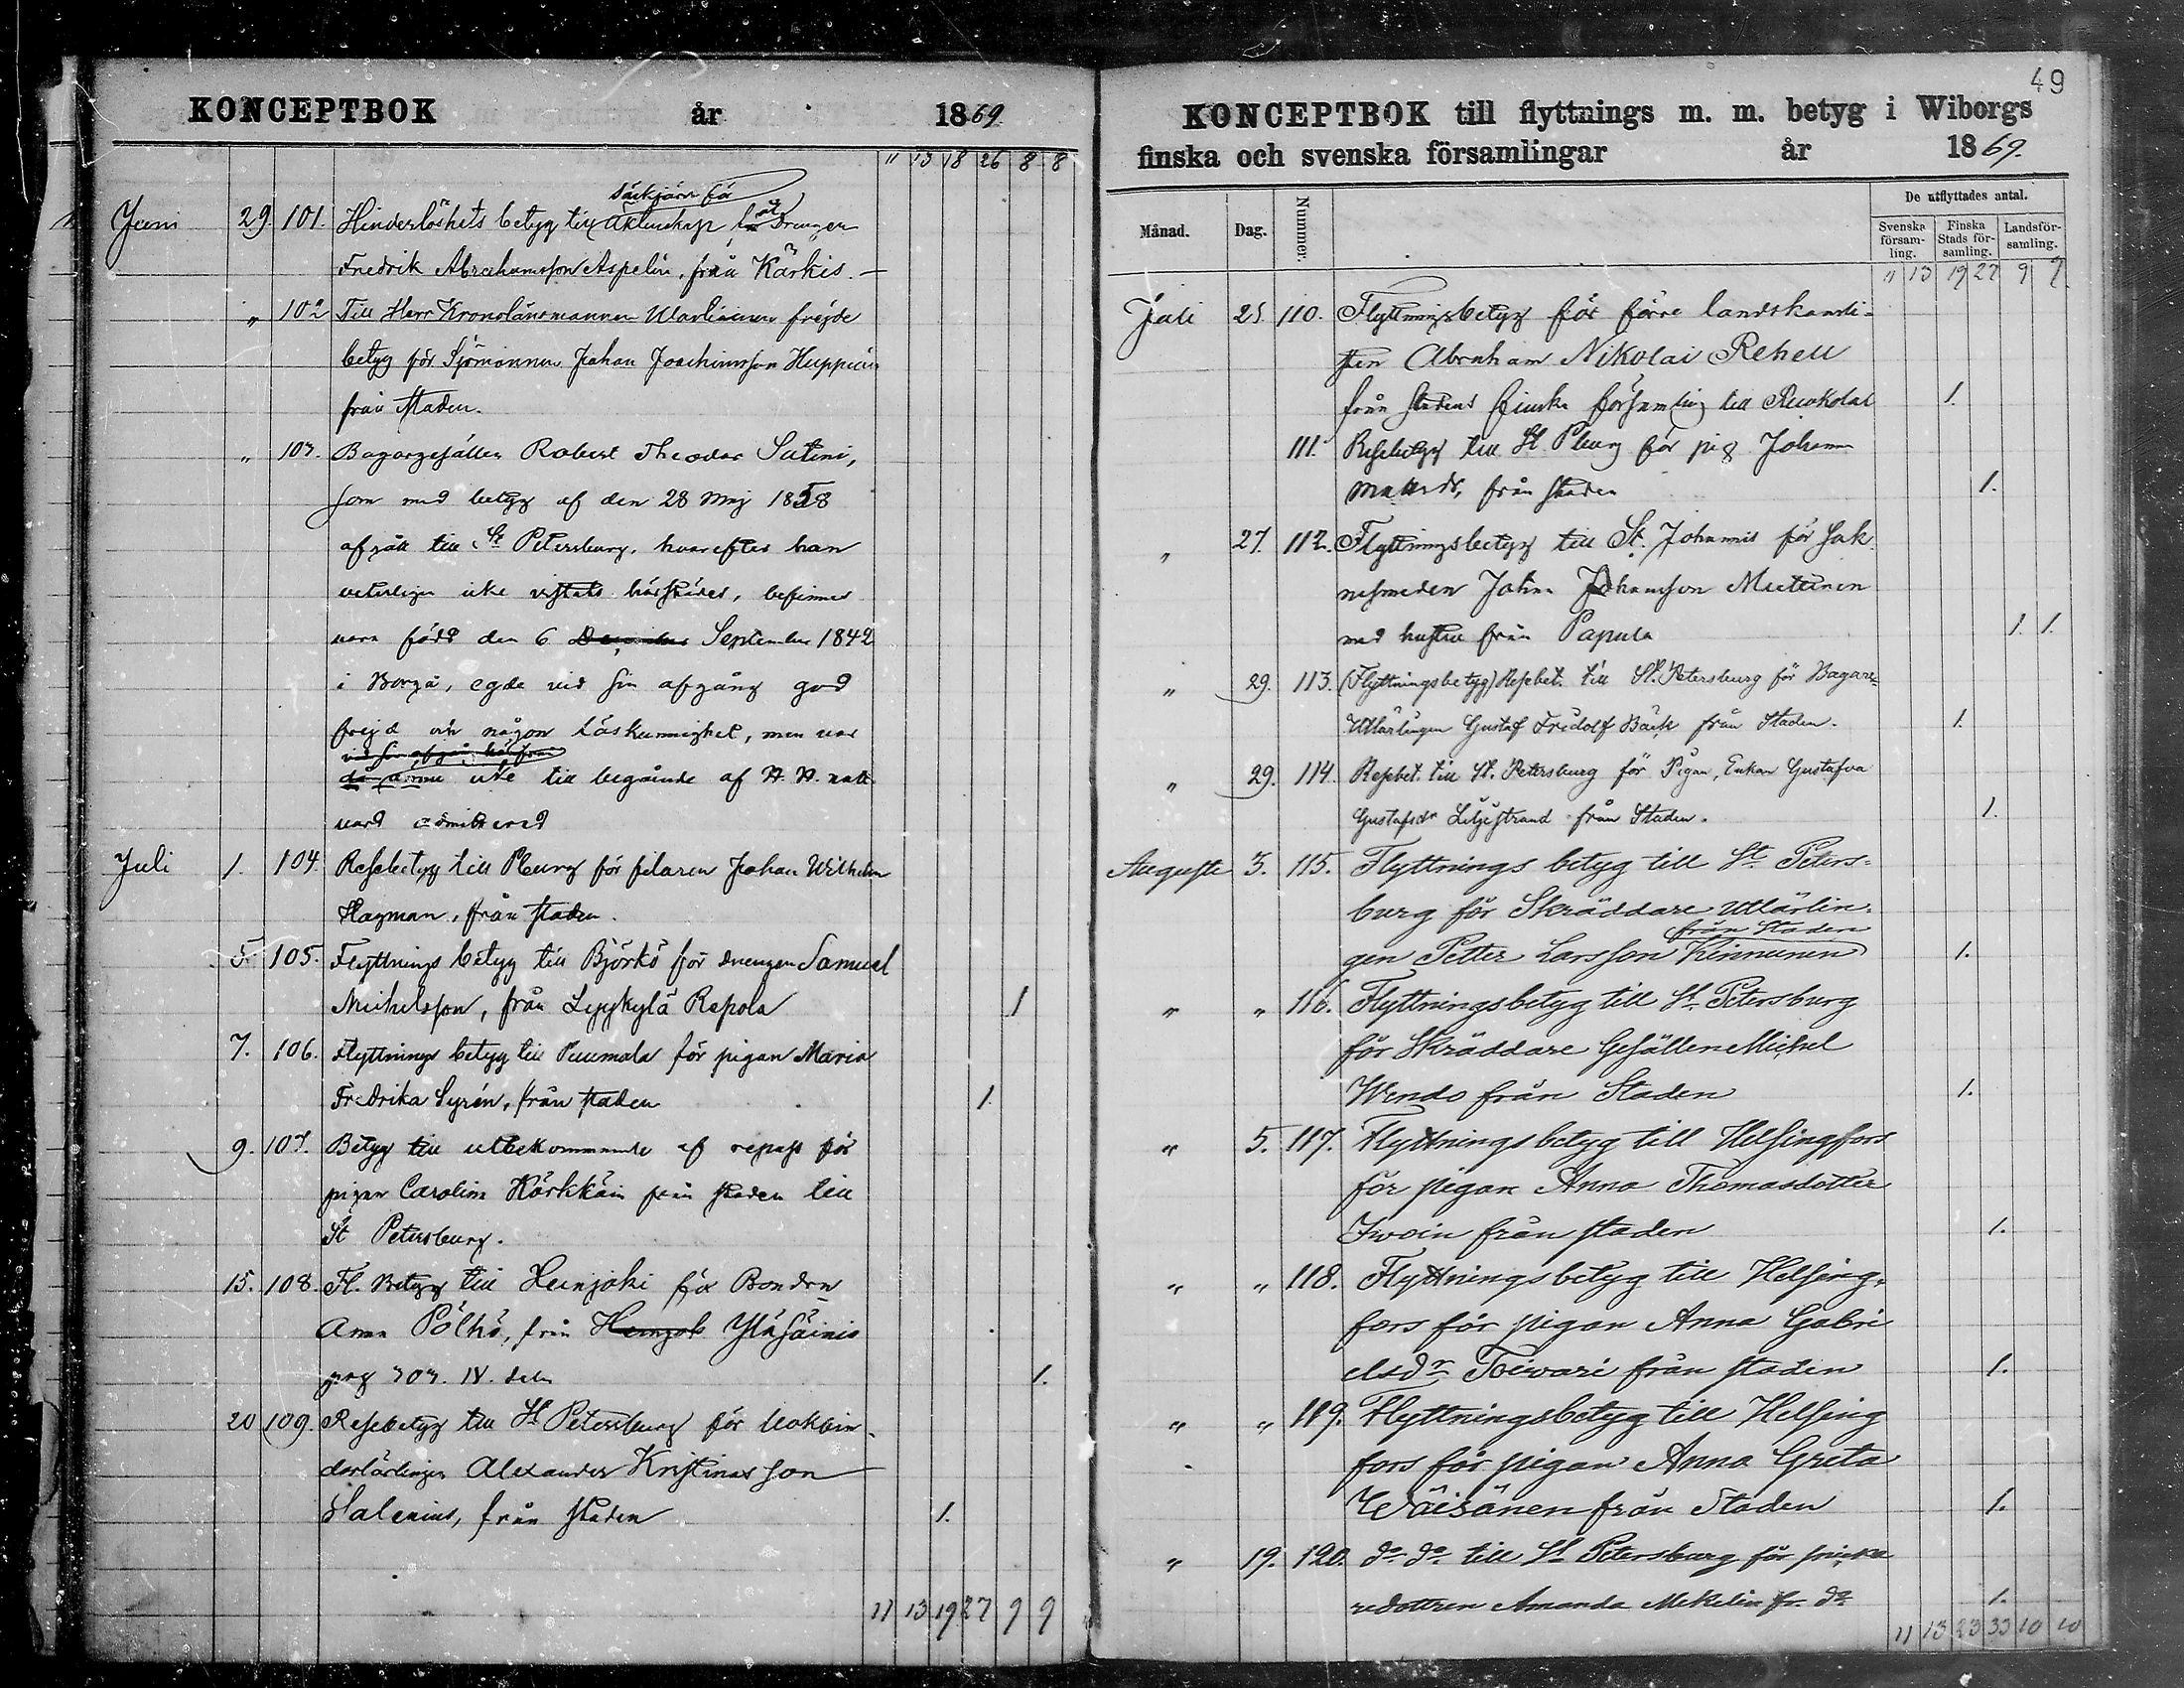 KONCEPTBOK år 1869.
" 13 18 26 8 8
Säkjärvi för
Juni 29. 101. Hinderlöshets betyg till Äktenskap åt Drengen
Fredrik Abrahamsson Aspelin, från Kärkis. —
" 102 Till Herr Kronolänsmannen frejde
betyg för Sjömannen Johan Joachimsson Huppinen
från staden.
" 103. Bagargesällen Robert Theodor Sutini,
som med betyg af den 28 Maj 1858
afgått till St Petersburg, hvarefter han
veterligen icke vistats härstädes, befinnes
vara född den 6 December September 1842
i Borgå, egde vid sin afgång god
frejd och någon läskunnighet, men var
vid sin afgång härifrån
då ännu icke till begående af H. H. natt
vard admitterad
Juli 1. 104. Resebetyg till Pburg för filaren Johan Wilhelm
Hagman, från staden.
5. 105. Flyttnings betyg till Björkö för drengen Samuel
Michelsson, från Lyykylä Repola 1
7. 106. Flyttnings betyg till Puumala för pigan Maria
Fredrika Syrén, från staden 1.
9. 107. Betyg till utbekommande af respass för
pigan Carolina Kärkkäin från staden till
St Petersburg.
15. 108. Fl. Betyg till Heinjoki för Bonden
Anna Pölhö, från Heinjoki Yläsäiniö
pag 303. IV. delen 1.
20 109. Resebetyg till St Petersburg för bokbin-
darlärlingen Alexander Kristinasson
Halenius, från staden 1.
11 13 19 27 9 9
49
KONCEPTBOK till flyttnings m. m. betyg i Wiborgs
finska och svenska församlingar år 1869.
Månad. Dag. Nummer. De utflyttades antal.
Svenska församling. Finska Stads församling. Landsförsamling.
" 13 19 27 9 9
Juli 25 110. Flyttningsbetyg för förre landskansli-
sten Abraham Nikolai Rehell
från stadens finska församling till Ruokolaks 1.
111. Resebetyg till St. Pburg för pig Johanna
Mattsdr, från staden 1.
" 27. 112. Flyttningsbetyg till St. Johannis för Sak
nesmeden Johan Johansson Miettinen
med hustru från Papula 1. 1.
" 29. 113. (Flyttningsbetyg) Resebet. till St. Petersburg för Bagare-
Utlärlingen Gustaf Fridolf Bäck från Staden. 1.
" 29. 114. Resebet. till St. Petersburg för Pigan, Enkan Gustafva
Gustafsdr Liljestrand från Staden. 1.
Augusti 3. 115. Flyttnings betyg till St. Peters-
burg för Skräddare Utlärlin-
från Staden
gen Petter Larsson Kinnunen 1.
" " 116. Flyttningsbetyg till St. Petersburg
för Skräddare Gesällen Michel
Wendo från Staden 1.
" 5. 117. Flyttningsbetyg till Helsingfors
för pigan Anna Thomasdotter
Iwoin från staden 1.
" " 118. Flyttningsbetyg till Helsing-
fors för pigan Anna Gabri
elsdr Toiwari från staden 1.
" " 119. Flyttningsbetyg till Helsing
fors för pigan Anna Greta
Wäisänen från Staden 1.
" 19. 120. do do till St. Petersburg för
redottren Amanda Mekelin fr. do 1.
11 13 23 33 10 10